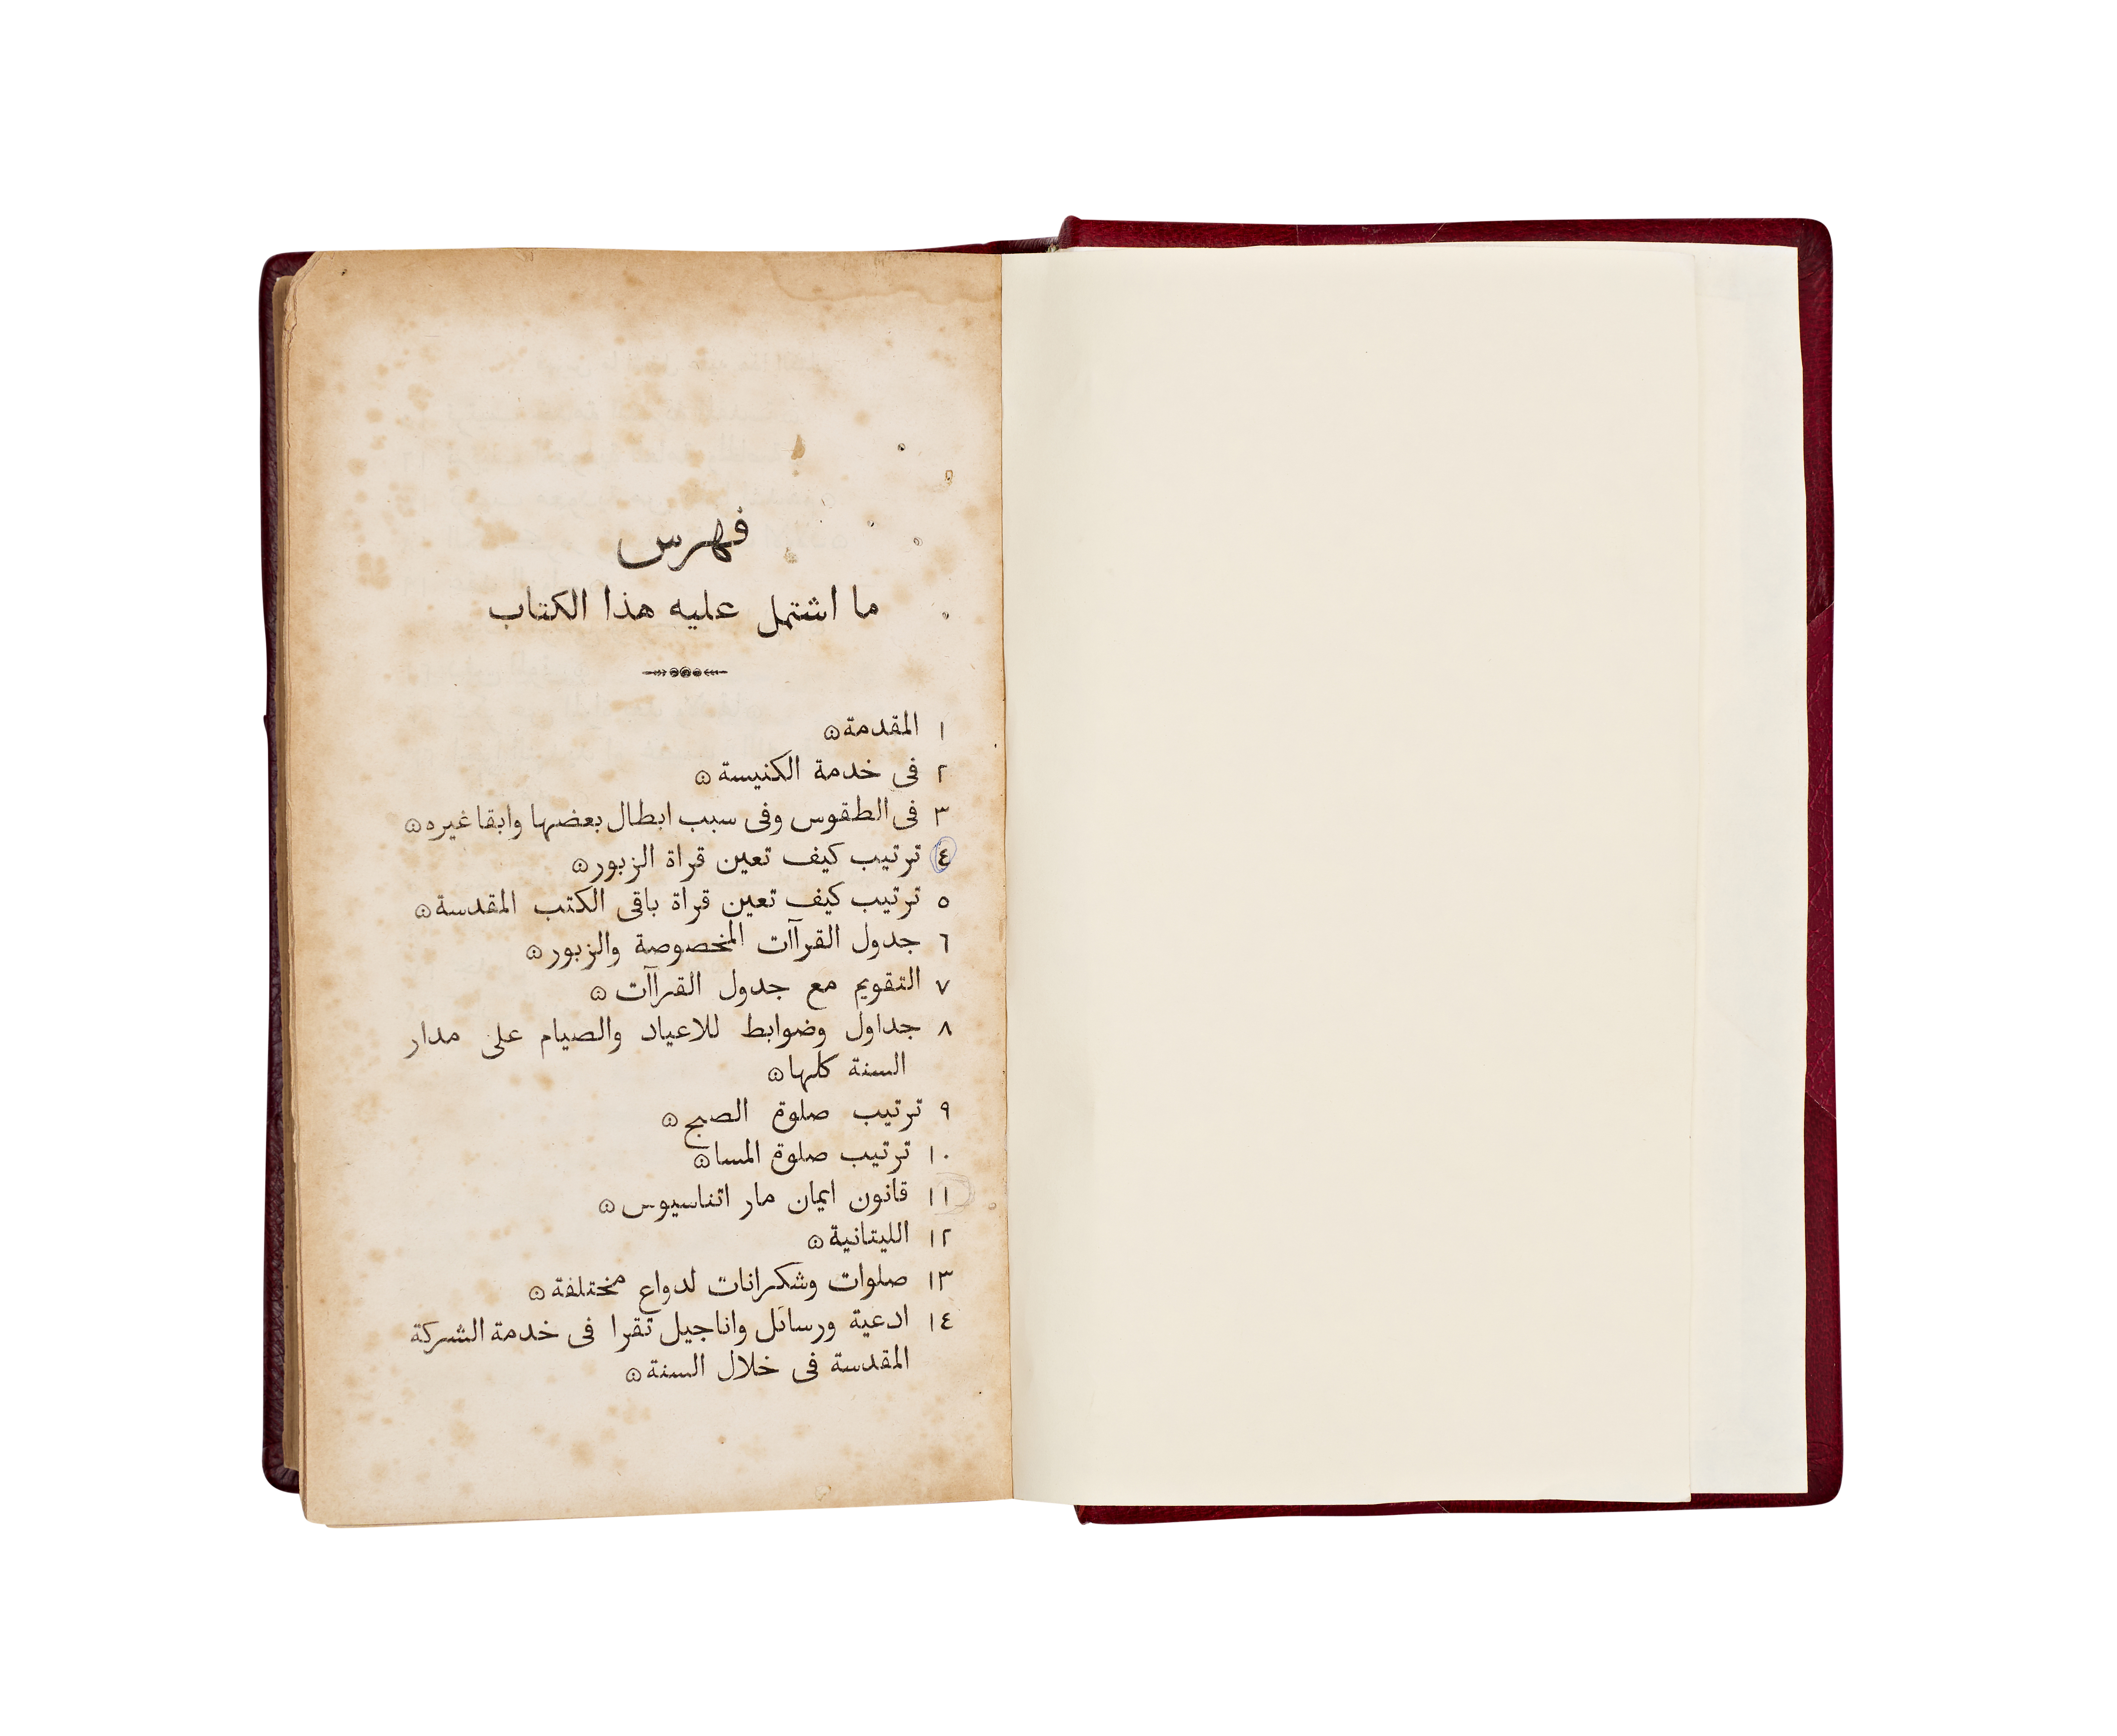 فهرس
ما اشتمل عليه هذا الكتاب
١ المقدمة ۞
٢ فى خدمة الكنيسة ۞
٣ فى الطقوس وفى سبب ابطال بعضها وابقا غيره ۞
٤ ترتيب كيف تعين قراة الزبور ۞
٥ ترتيب كيف تعين قراة باقى الكتب المقدسة ۞
٦ جدول القراآت المخصوصة والزبور ۞
٧ التقويم مع جدول القراآت ۞
٨ جداول وضوابط للاعياد والصيام على مدار
السنة كلها ۞
٩ ترتيب صلوة الصبح ۞
١٠ ترتيب صلوة المسا ۞
١١ قانون ايمان مار اتناسيوس ۞
١٢ الليتانية ۞
١٣ صلوات وشكرانات لدواع مختلفة ۞
١٤ ادعية ورسائل واناجيل تقرا فى خدمة الشركة
المقدسة فى خلال السنة ۞